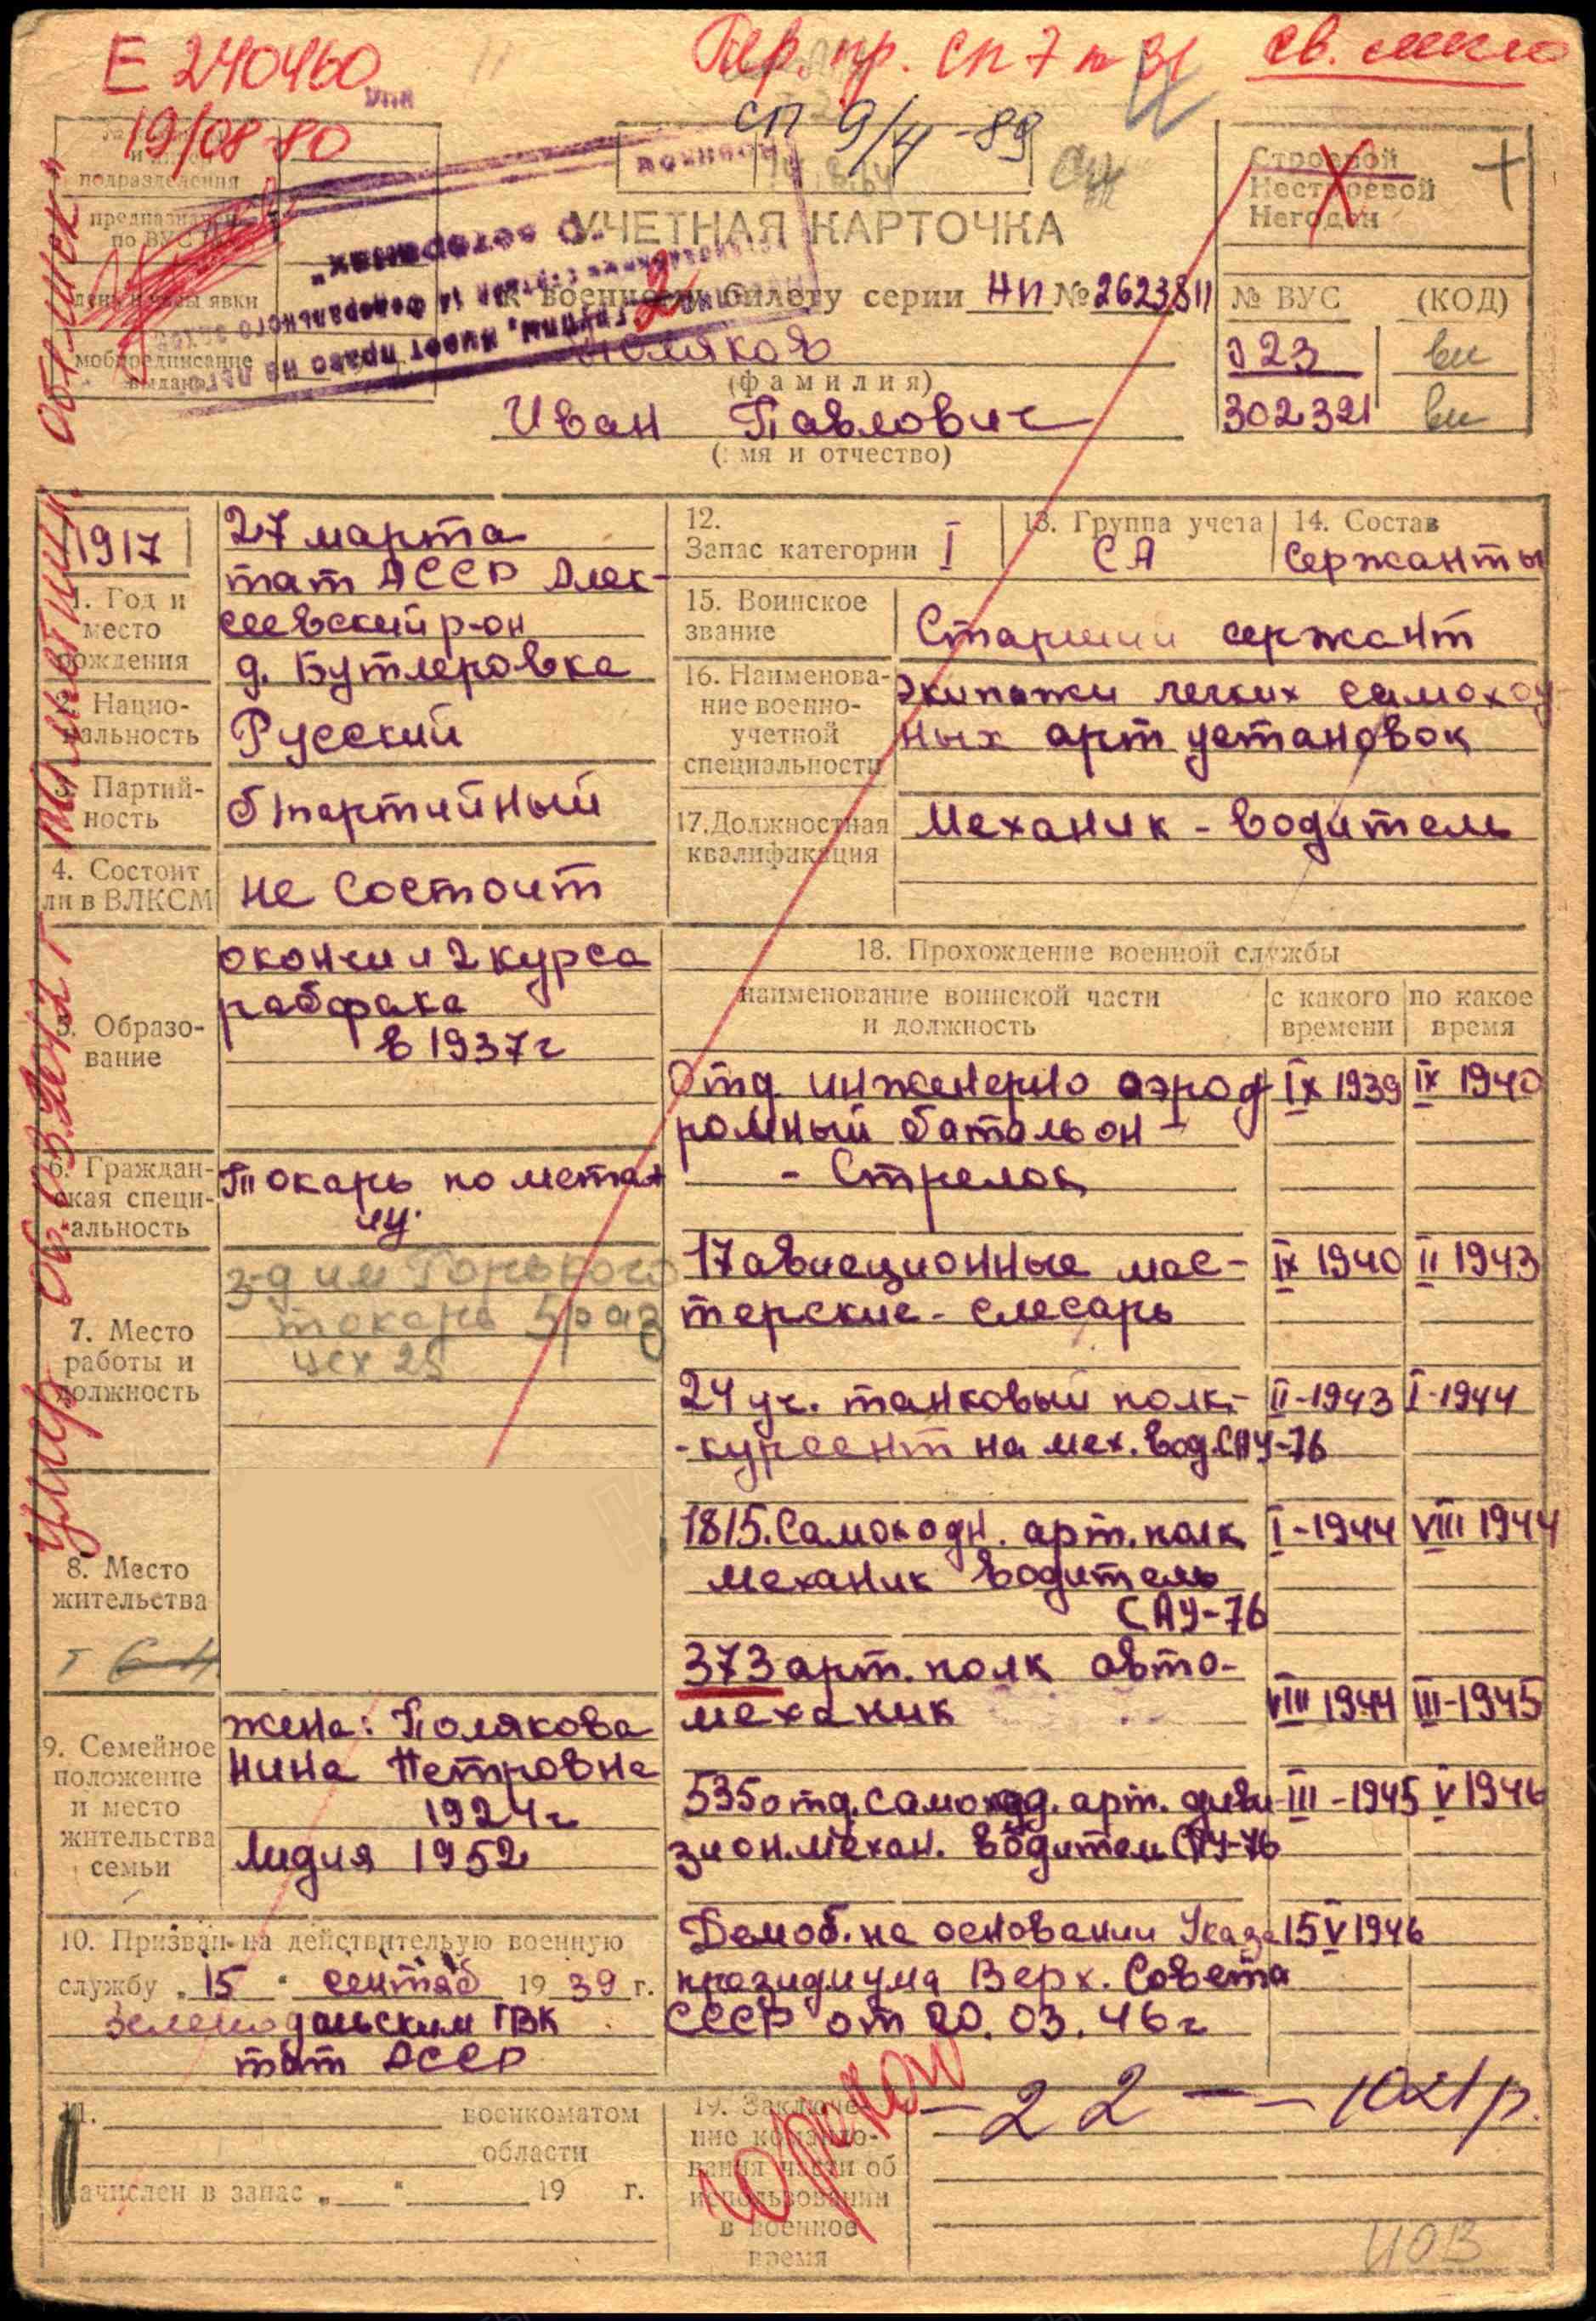 Е 240460
Пер. пр. СП 7
св.
упк
19/08 80
СП 9/4-89
подразделения
предназначен
по ВУС №
день и часы явки
мобпредписание
выдано
военком
"О ветеранах"
группы, имеет право на льготы
Строевой
Нестроевой
Негоден
УЧЕТНАЯ КАРТОЧКА
к военному билету серии НП № 2623811
Поляков
(фамилия)
Иван Павлович
(имя и отчество)
№ ВУС (КОД)
023 ви
302321 ви
умер 06.03.2012 г.
1917
1. Год и
место
рождения
27 марта
тат АССР Алек-
сеевский р-он
д. Бутлеровка
2. Нацио-
нальность
Русский
3. Партий-
ность
б/партийный
4. Состоит
ли в ВЛКСМ
не состоит
5. Образо-
вание
окончил 2 курса
рабфака
в 1937г
6. Граждан-
ская специ-
альность
Токарь по метал
лу.
7. Место
работы и
должность
з-д им Горького
токарь 5 раз
цех 25
8. Место
жительства
9. Семейное
положение
и место
жительства
семьи
жена: Полякова
Нина Петровна
1924г
Лидия 1952
10. Призван на действительную военную
службу „15" сентяб 1939 г.
Зеленодольским ГВК
тат АССР
11. военкоматом
области
зачислен в запас „ " 19 г.
12.
Запас категории I
13. Группа учета
СА
14. Состав
Сержанты
15. Воинское
звание
Старший сержант
16. Наименова-
ние военно-
учетной
специальности
Экипажи легких самоход-
ных арт установок
17. Должностная
квалификация
Механик - водитель
18. Прохождение военной службы
наименование воинской части
и должность
с какого
времени
по какое
время
Отд инженерно аэрод IX 1939 IX 1940
ромный батальон -
- Стрелок
17 авиационные мас- IX 1940 II 1943
терские - слесарь
24 уч. танковый полк - II-1943 I-1944
- курсант на мех. вод. САУ-76
1815. Самоходн. арт. полк I-1944 VIII 1944
механик водитель
САУ-76
373 арт. полк авто-
механик VIII 1944 III-1945
535 отд. самоход. арт. диви III-1945 V 1946
зион. Механ. водители САУ-76
Демоб. на основании Указа 15 V 1946
президиума Верх. Совета
СССР от 20.03.46г
19. Заключе-
ние командо-
вания части об
использовании
в военное
время
- 22 -
ИОВ